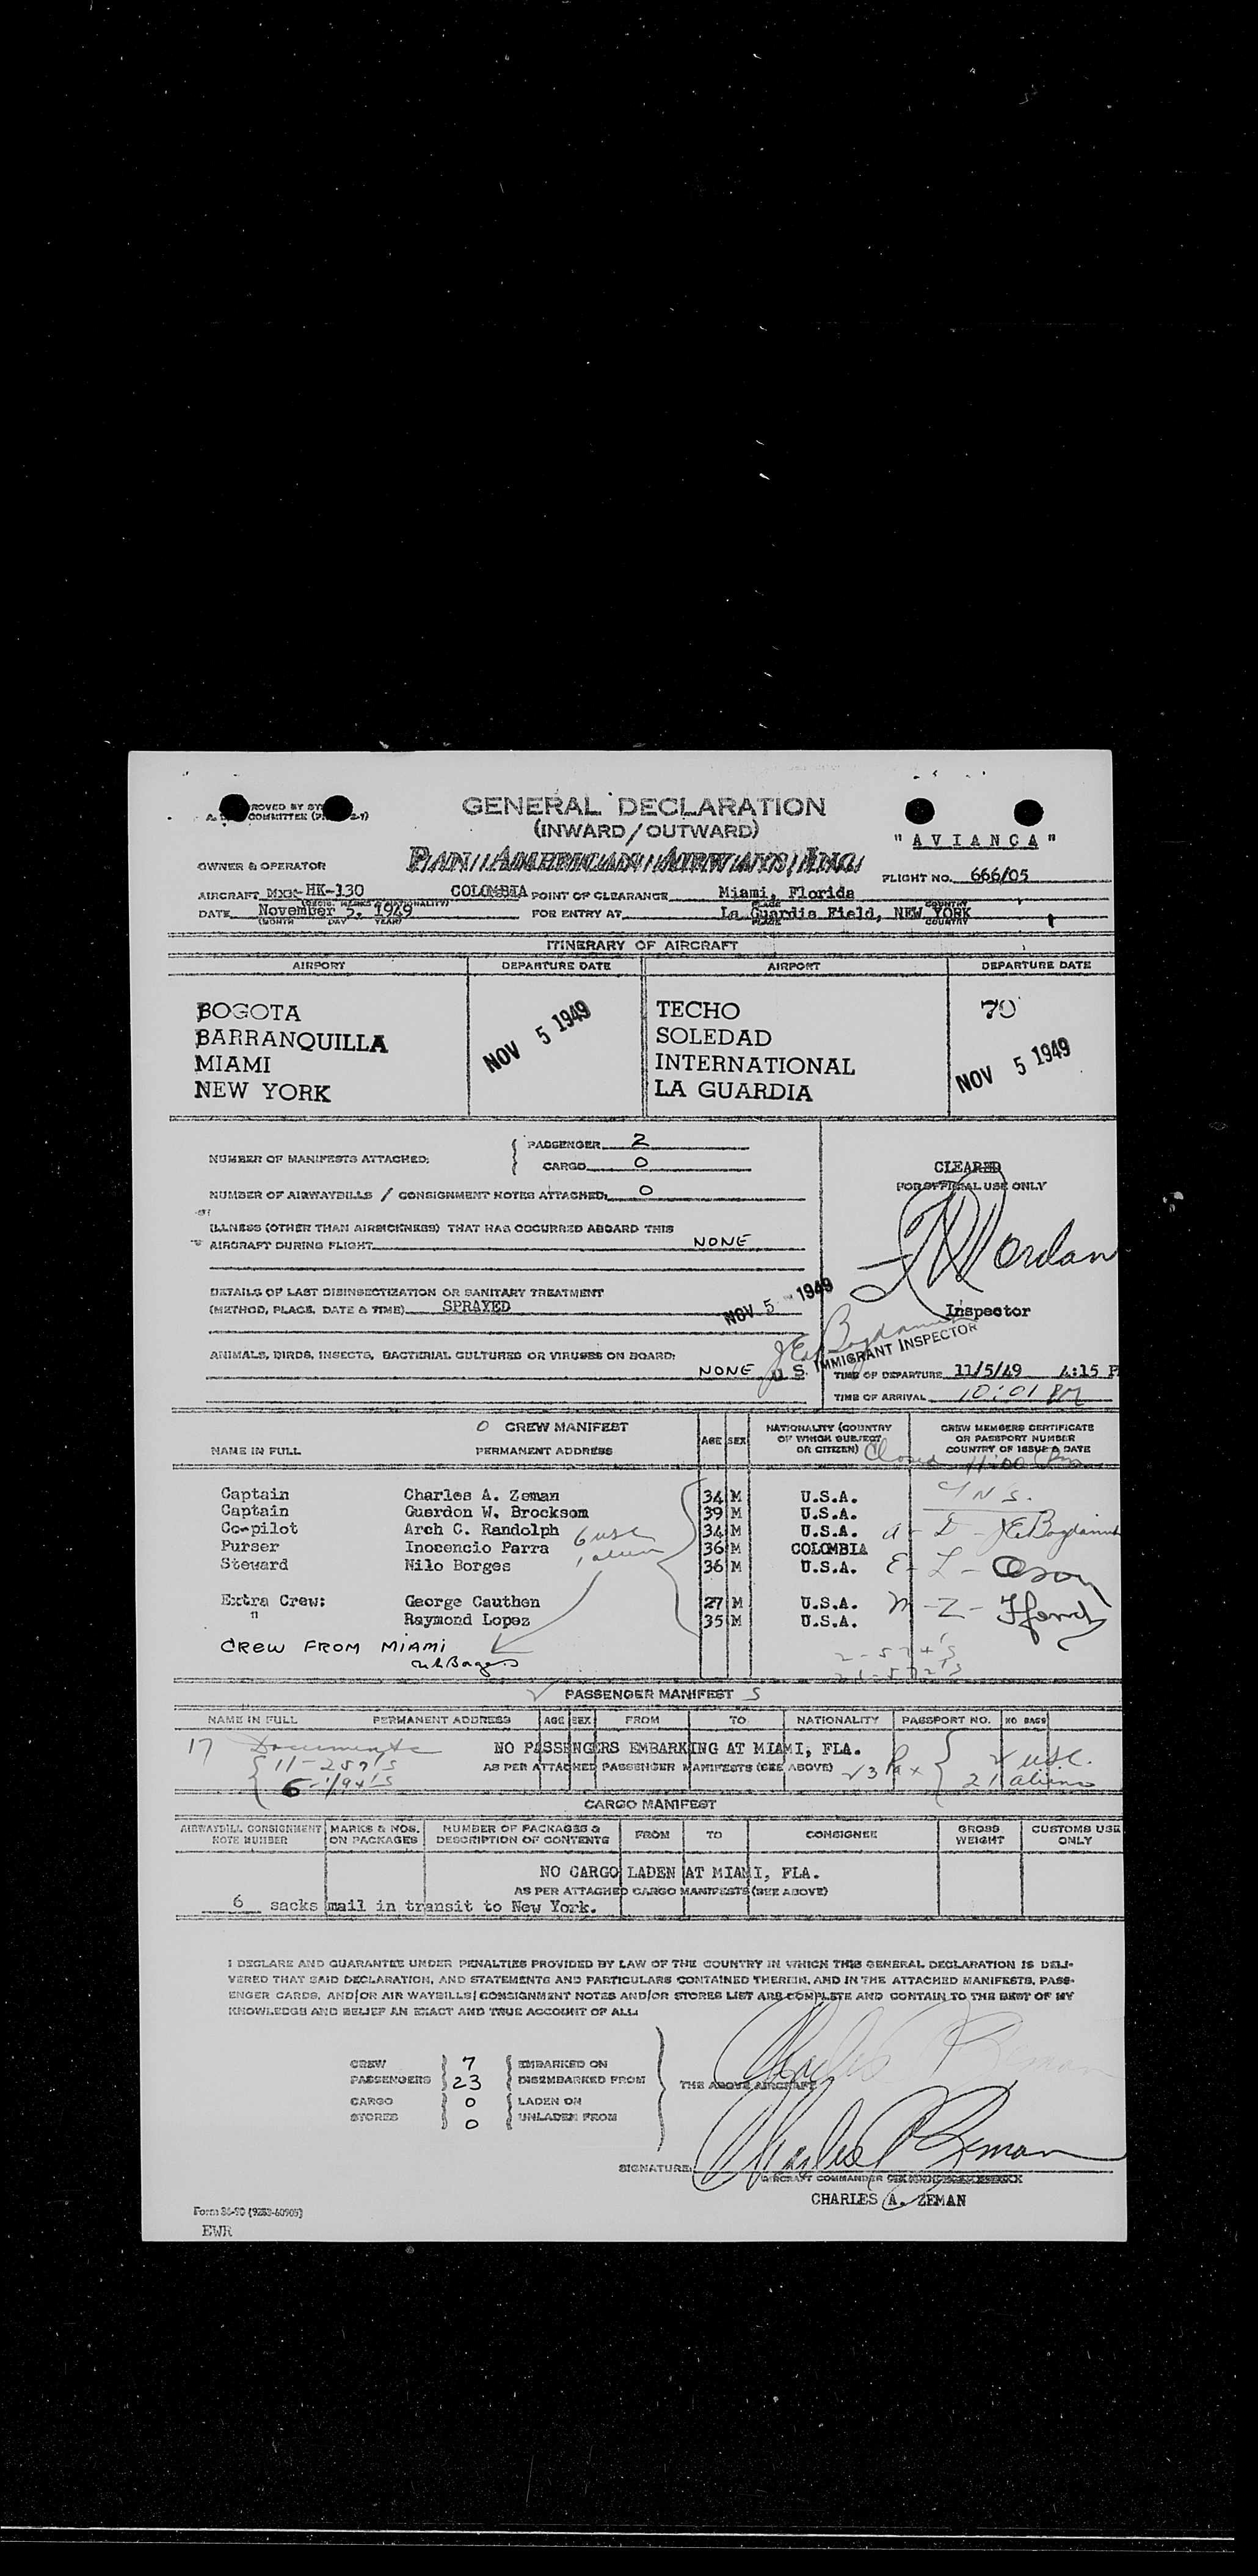 GENERAL DECLARATION
(INWARD/OUTWARD)
"AVIANCA"
PAN AMERICAN AIRWAYS, INC.
OWNER & OPERATOR
FLIGHT NO. 666/05
AIRCRAFT HK-130 COLOMBIA POINT OF CLEARANCE Miami, Florida
DATE November 5, 1949 FOR ENTRY AT La Guardia Field, NEW YORK
(MONTH DAY YEAR) PLACE COUNTRY
ITINERARY OF AIRCRAFT
AIRPORT DEPARTURE DATE AIRPORT DEPARTURE DATE
BOGOTA TECHO 70
BARRANQUILLA NOV 5 1949 SOLEDAD
MIAMI INTERNATIONAL NOV 5 1949
NEW YORK LA GUARDIA
NUMBER OF MANIFESTS ATTACHED: PASSENGER 2
CARGO 0
CLEARED
FOR OFFICIAL USE ONLY
NUMBER OF AIRWAYBILLS / CONSIGNMENT NOTES ATTACHED: 0
ILLNESS (OTHER THAN AIRSICKNESS) THAT HAS OCCURRED ABOARD THIS
AIRCRAFT DURING FLIGHT NONE
DETAILS OF LAST DISINSECTIZATION OR SANITARY TREATMENT
(METHOD, PLACE, DATE & TIME) SPRAYED
NOV 5 1949
Inspector
U.S. IMMIGRANT INSPECTOR
ANIMALS, BIRDS, INSECTS, BACTERIAL CULTURES OR VIRUSES ON BOARD:
NONE
TIME OF DEPARTURE 11/5/49 4:15 P
TIME OF ARRIVAL 10:01 PM
0 CREW MANIFEST
NAME IN FULL PERMANENT ADDRESS AGE SEX NATIONALITY (COUNTRY OF WHICH SUBJECT OR CITIZEN) CREW MEMBERS CERTIFICATE OR PASSPORT NUMBER COUNTRY OF ISSUE & DATE
Closed 11:00 Pm
Captain Charles A. Zeman 34 M U.S.A. INS.
Captain Guerdon W. Brocksom 39 M U.S.A.
Co-pilot Arch C. Randolph 34 M U.S.A.
6 usc
Purser Inocencio Parra 36 M COLOMBIA
1 alien
Steward Nilo Borges 36 M U.S.A.
Extra Crew: George Cauthen 27 M U.S.A.
" Raymond Lopez 35 M U.S.A.
CREW FROM MIAMI
PASSENGER MANIFEST
NAME IN FULL PERMANENT ADDRESS AGE SEX FROM TO NATIONALITY PASSPORT NO. NO BAGS
17 Documents
NO PASSENGERS EMBARKING AT MIAMI, FLA.
11-257's
AS PER ATTACHED PASSENGER MANIFESTS (SEE ABOVE)
23 Pax 2 usc.
6-194's
21 aliens
CARGO MANIFEST
AIRWAYBILL CONSIGNMENT NOTE NUMBER MARKS & NOS. ON PACKAGES NUMBER OF PACKAGES & DESCRIPTION OF CONTENTS FROM TO CONSIGNEE GROSS WEIGHT CUSTOMS USE ONLY
NO CARGO LADEN AT MIAMI, FLA.
AS PER ATTACHED CARGO MANIFESTS (SEE ABOVE)
6 sacks mail in transit to New York.
I DECLARE AND GUARANTEE UNDER PENALTIES PROVIDED BY LAW OF THE COUNTRY IN WHICH THIS GENERAL DECLARATION IS DELI-
VERED THAT SAID DECLARATION, AND STATEMENTS AND PARTICULARS CONTAINED THEREIN, AND IN THE ATTACHED MANIFESTS, PASS-
ENGER CARDS, AND/OR AIR WAYBILLS/CONSIGNMENT NOTES AND/OR STORES LIST ARE COMPLETE AND CONTAIN TO THE BEST OF MY
KNOWLEDGE AND BELIEF AN EXACT AND TRUE ACCOUNT OF ALL:
CREW 7 EMBARKED ON
PASSENGERS 23 DISEMBARKED FROM THE ABOVE AIRCRAFT
CARGO 0 LADEN ON
STORES 0 UNLADEN FROM
SIGNATURE: Charles A Zeman
AIRCRAFT COMMANDER
CHARLES A. ZEMAN
Form 36-90 (9283-60905)
EWR